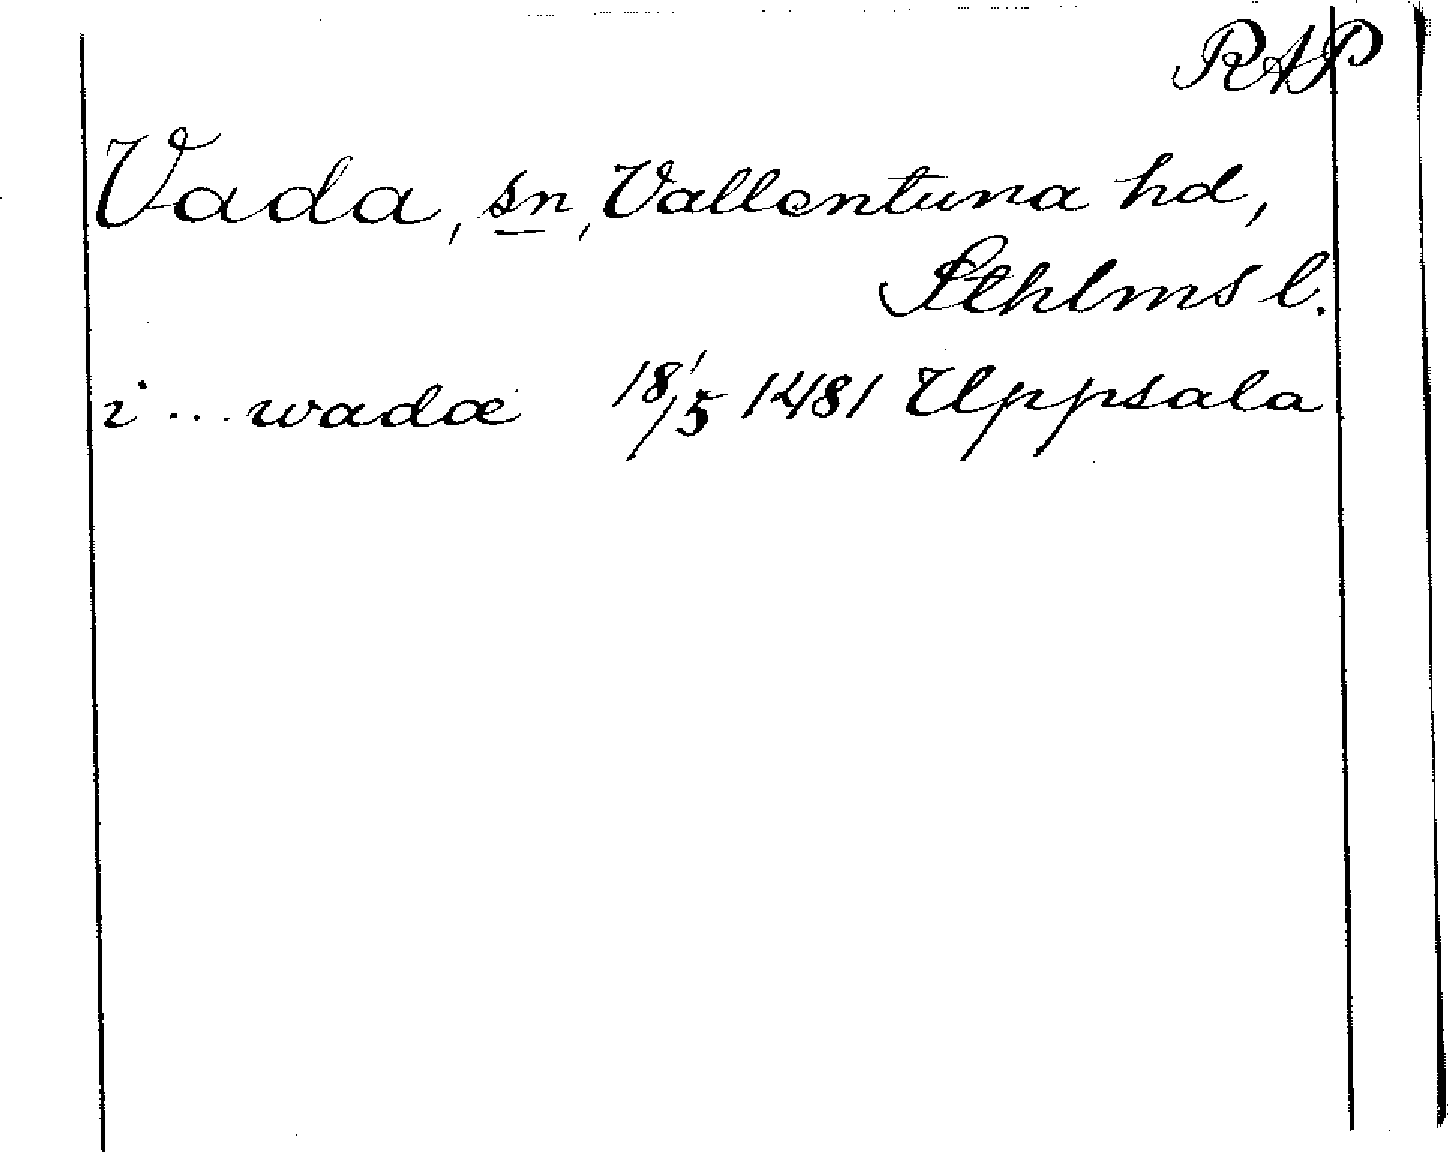 RAP
Vada, sn, Vallentuna hd,
Sthlms l.
i ... wadæ 18/5 1481 Uppsala